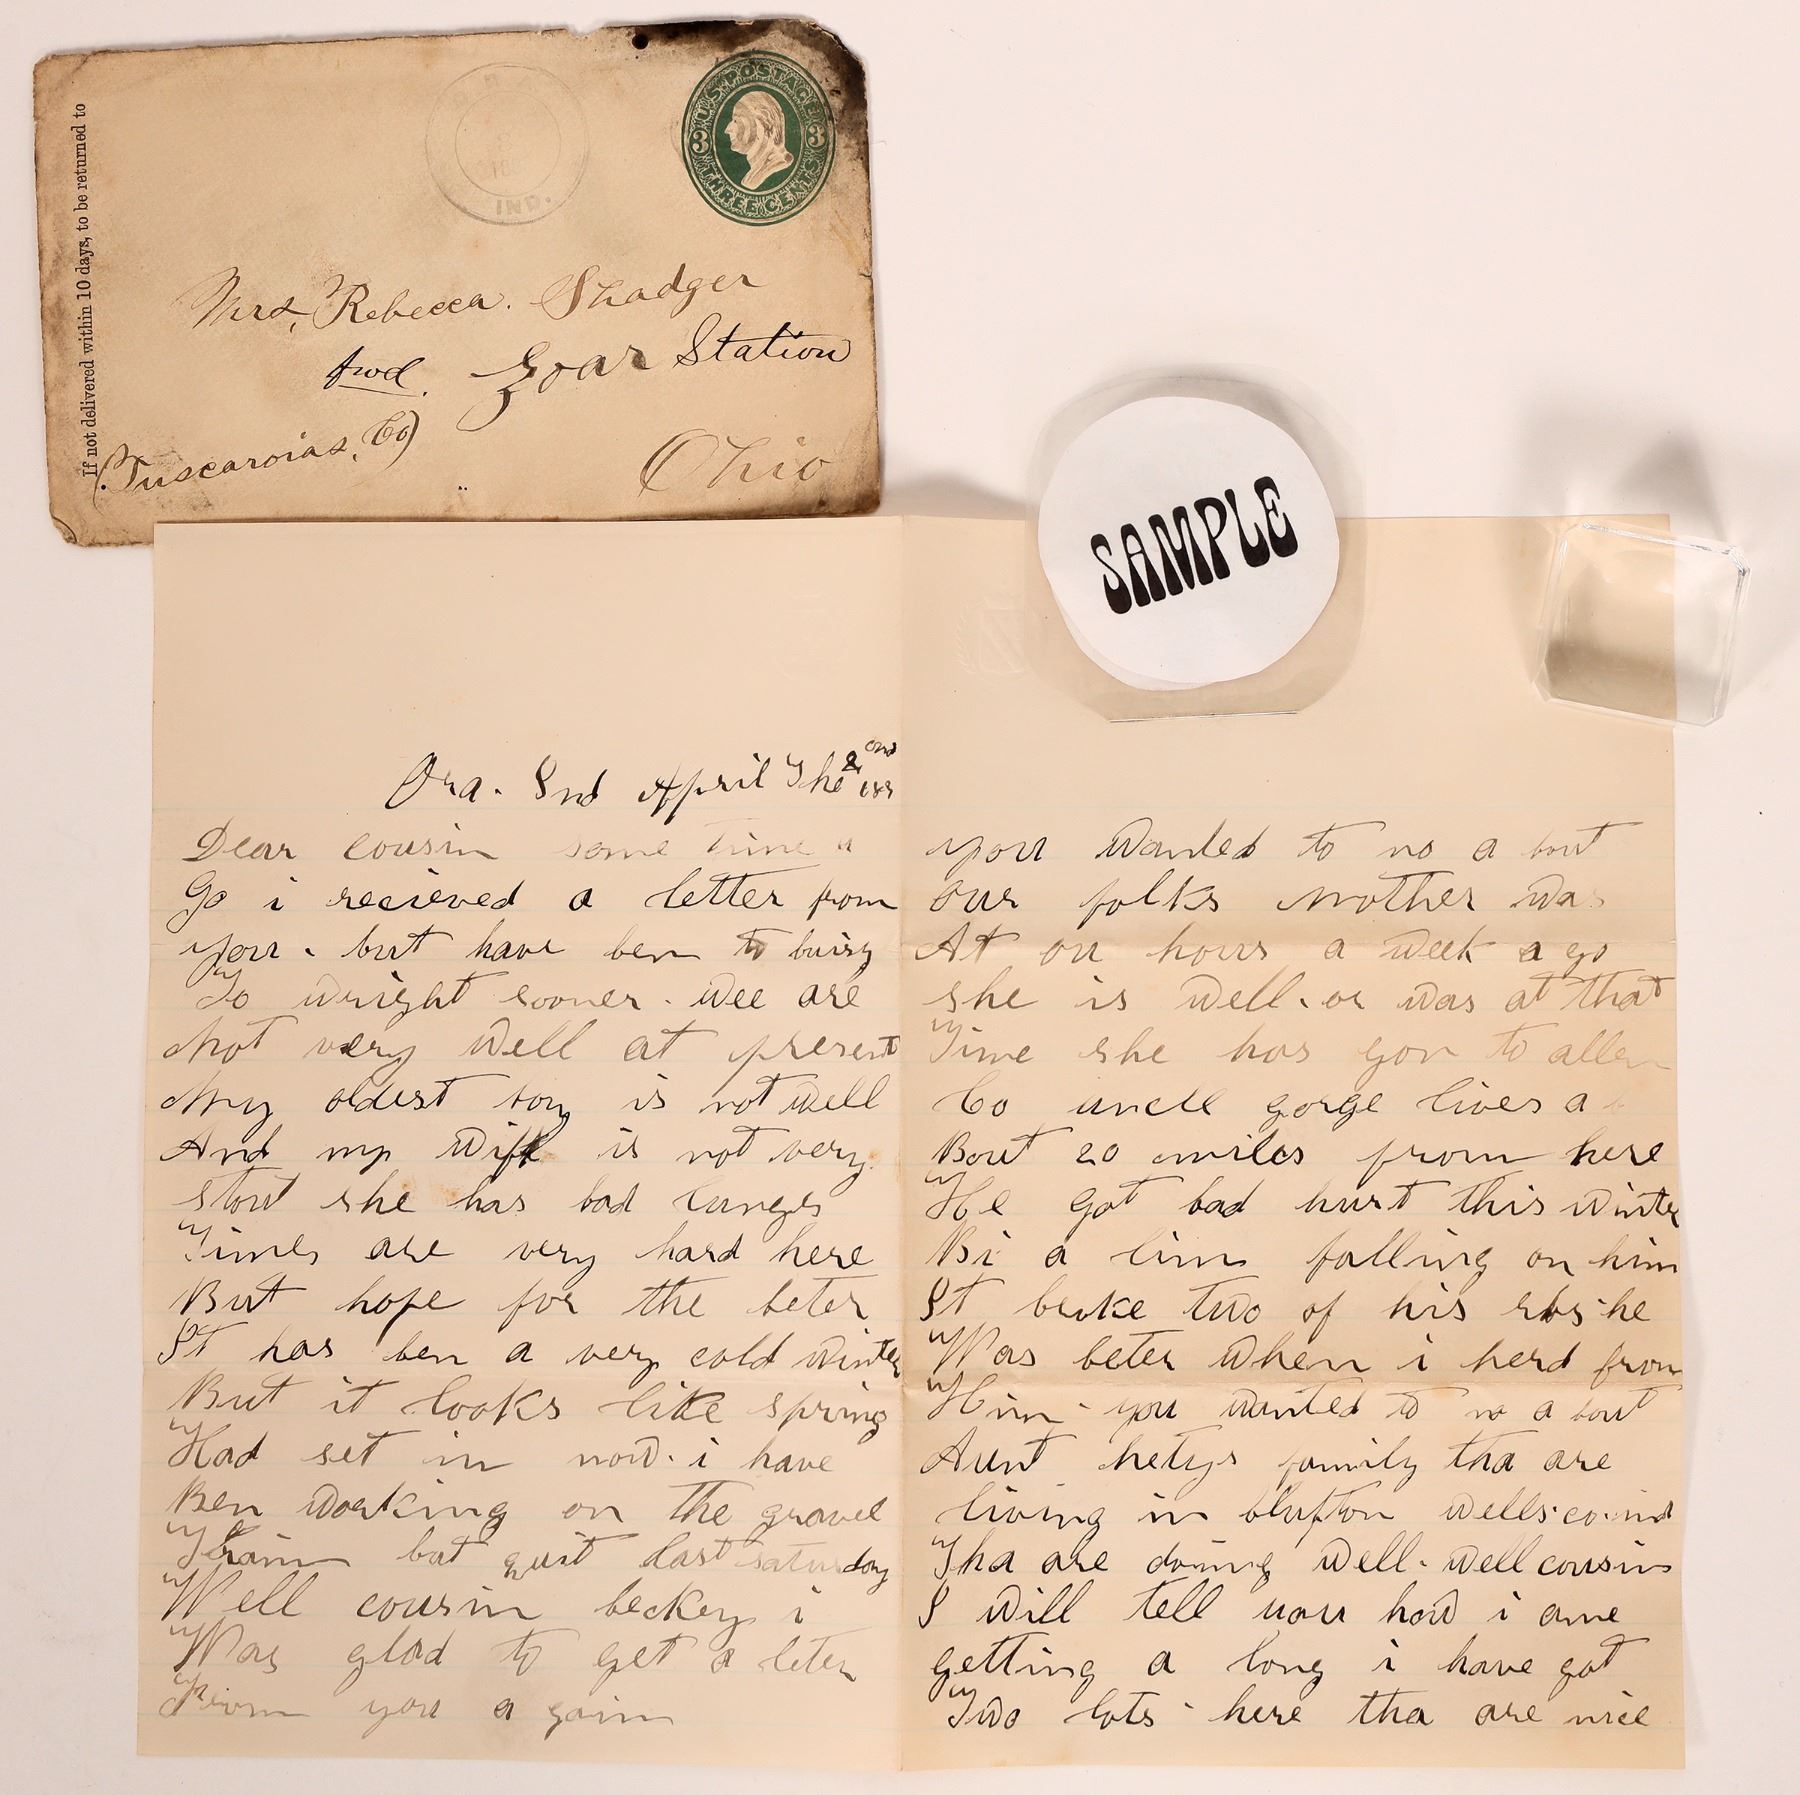 If not delivered within 10 days, to be returned to
U.S. POSTAGE
3 3
THREE CENTS
IND.
Mrs, Rebecca. Shadger
fwd. Zoar Station
(Tuscaroias, Co)
Ohio
SAMPLE
Ora. Ind April The 2 ond 188
Dear cousin some time a
Go i recieved a letter from
you. but have ben to buisy
To wright sooner. wee are
Not very well at present
My oldest boy is not well
And my wife is not very
stout she has bad lungs
Times are very hard here
But hope for the beter
It has ben a very cold winter
But it looks like spring
Had set in now. i have
Ben working on the gravel
Train but quit last saturday
Well cousin beckey i
Was glad to get a leter
From you a gain
you wanted to no a bout
our folks mother was
At ou hous a week a go
she is well. or was at that
Time she has gon to allen
Co uncle gorge lives a
Bout 20 miles from here
He got bad hurt this winter
Bi a lim falling on him
It broke two of his ribs he
Was beter when i herd from
Him - you wanted to no a bout
Aunt hetys family tha are
living in blufton wells. co. ind
Tha are doing well. well cousin
I will tell you how i ame
getting a long i have got
Two lots - here tha are nice